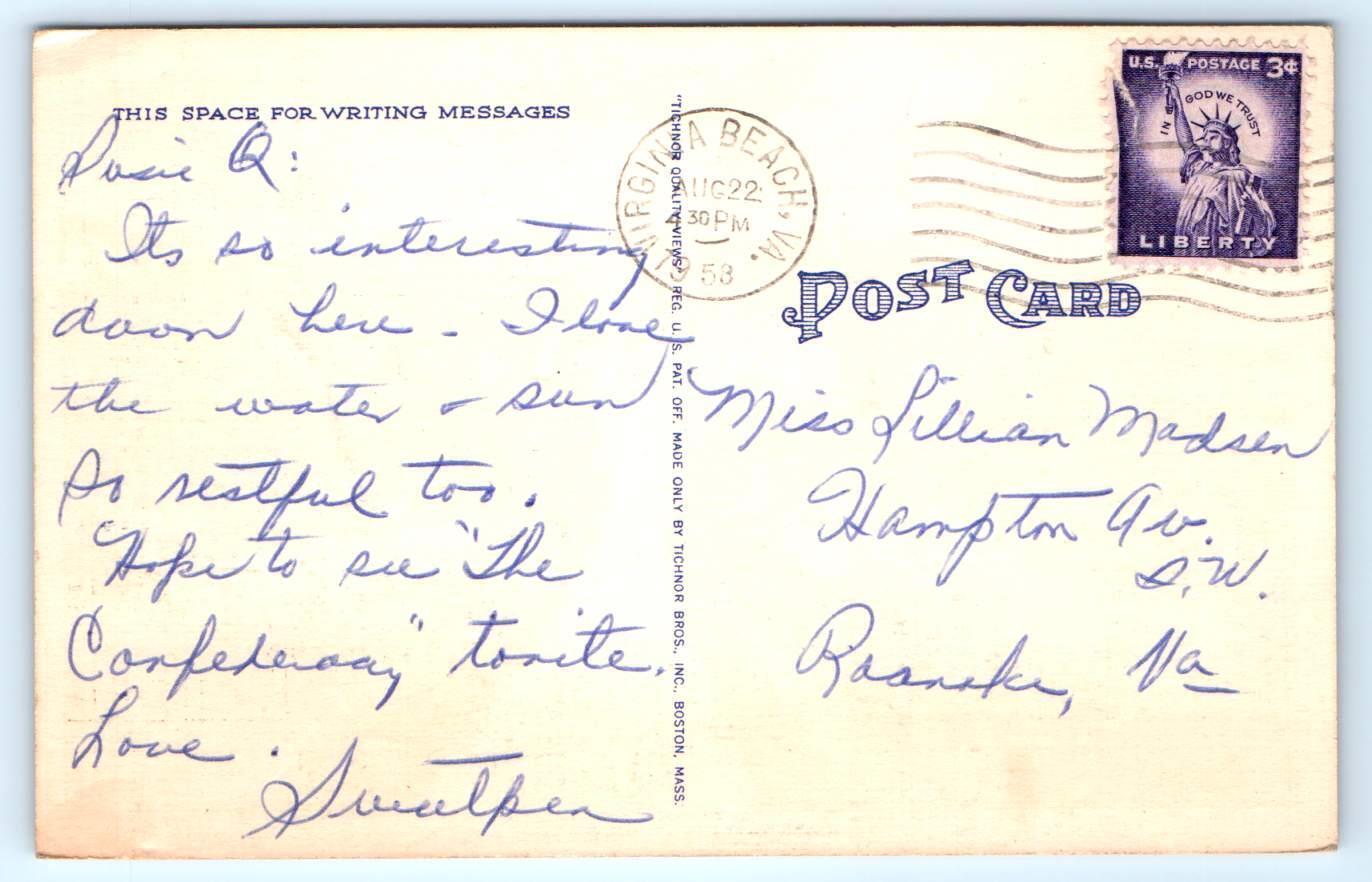 THIS SPACE FOR WRITING MESSAGES
Susie Q:
Its so interesting
down here - I love
the water & sun
So restful too.
Hope to see "The
Confederacy" tonite.
Love.
"TICHNOR QUALITY VIEWS" REG. U. S. PAT. OFF. MADE ONLY BY TICHNOR BROS., INC., BOSTON, MASS.
VIRGINIA BEACH, VA.
AUG 22
4 30 PM
1958
U.S. POSTAGE 3¢
IN GOD WE TRUST
LIBERTY
POST CARD
Miss Lillian Madsen
Hampton Av.
S.W.
Roanoke, Va